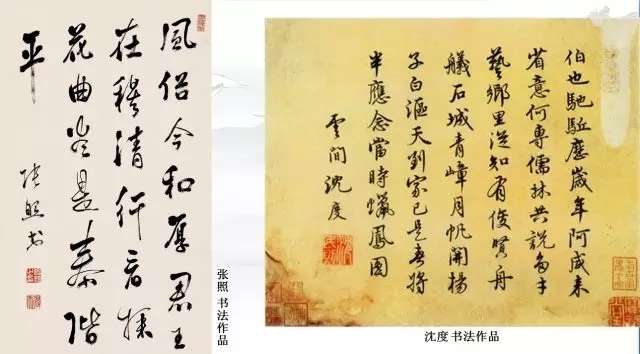 風俗今和厚君王
在穆清行看採
花曲尽是泰階
平
張照书
张照 书法作品
伯也馳駈歷歲年阿咸来
省意何専儒林共説多才
藝鄉里従知有俊賢舟
艤石城青嶂月帆開楊
子白漚天到家已是春将
半應念當時蠟鳳圓
雲間沈度
沈度 书法作品